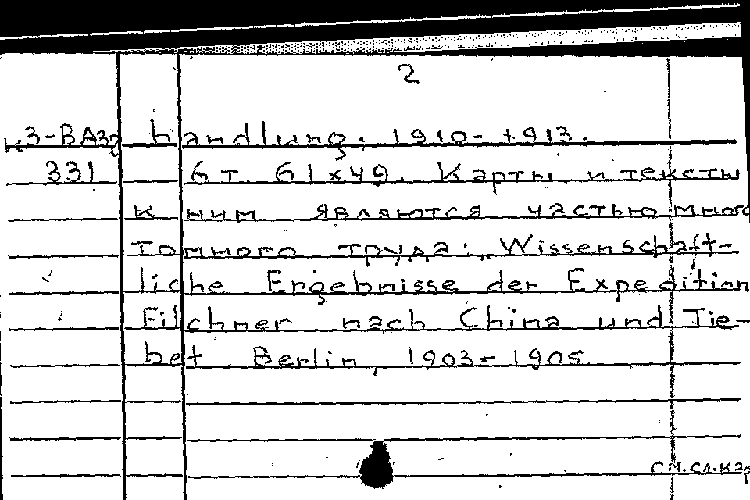 2
к3-ВАзд handlung. 1910-1913.
331 6 т. 61x49. Карты и тексты
к ним являются частью много
томного труда: „Wissenschaft-
liche Ergebnisse der Expedition
Filchner nach China und Tie-
bet Berlin, 1903-1905
См. сл. кар